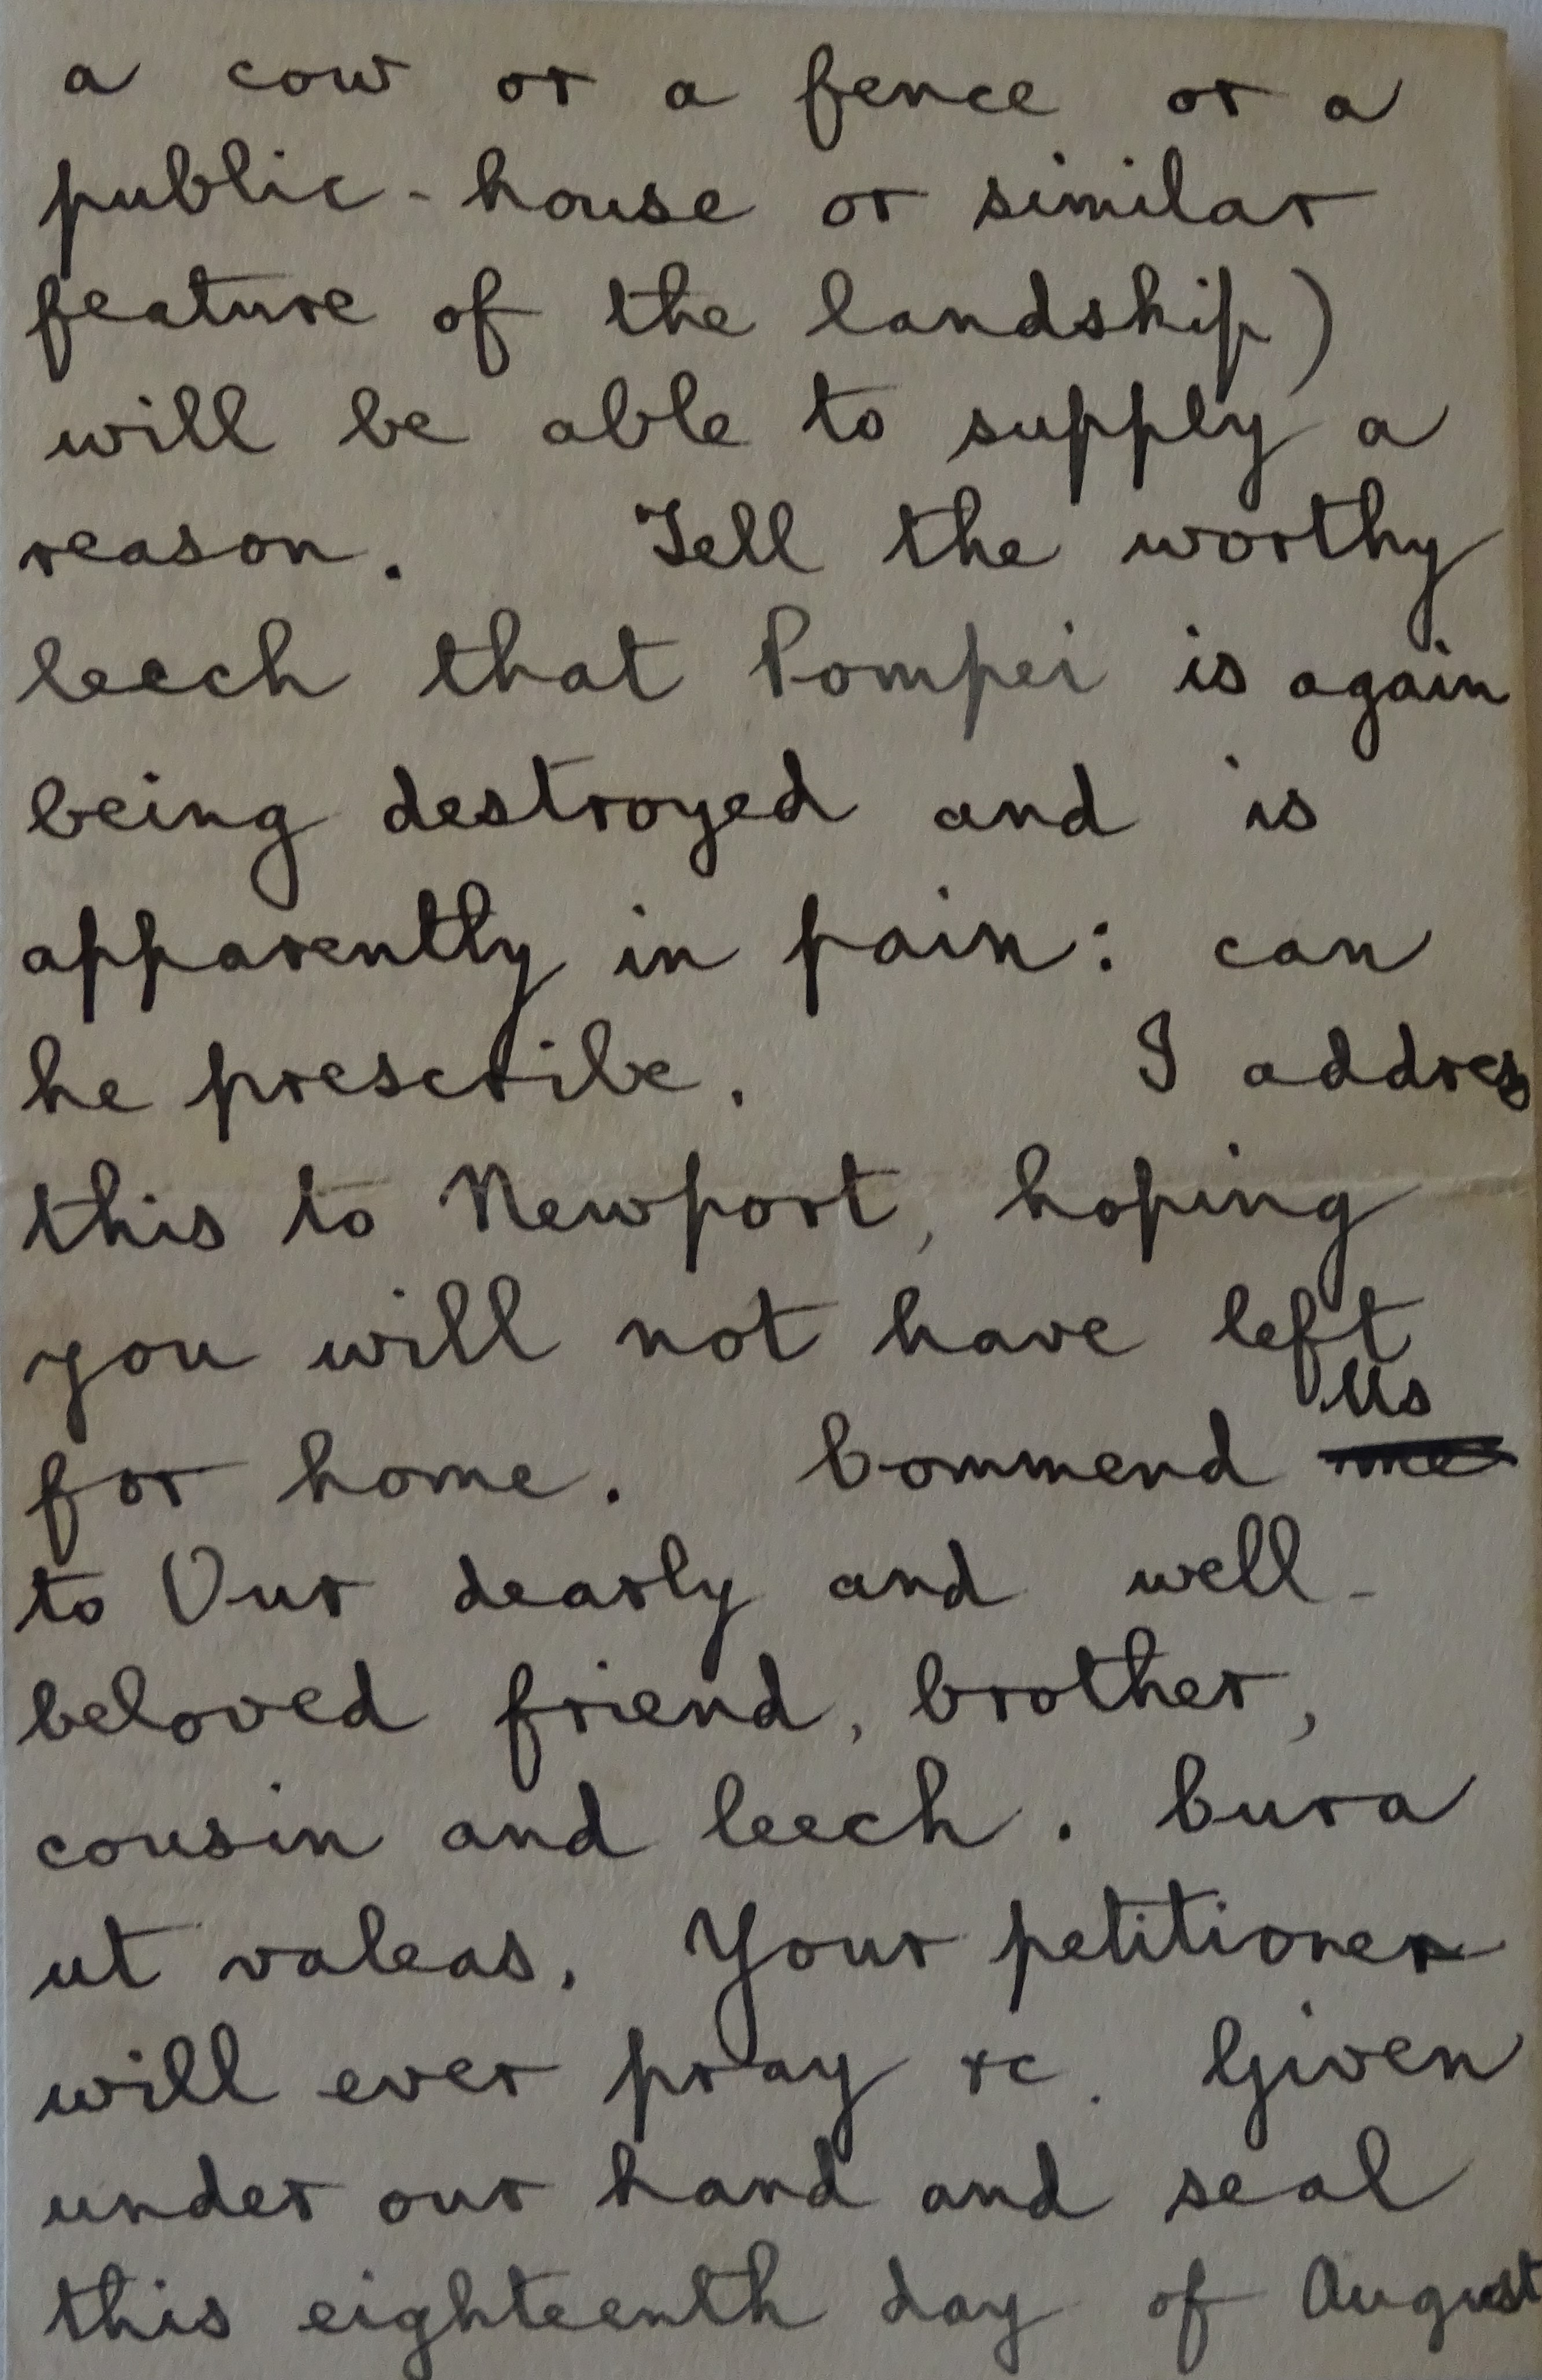 a cow or a fence or a
public-house or similar
feature of the landship)
will be able to supply a
reason. Tell the worthy
leech that Pompei is again
being destroyed and is
apparently in pain: can
he prescribe. I address
this to Newport, hoping
you will not have left
for home. Commend Us ~~me~~
to Our dearly and well-
beloved friend, brother,
cousin and leech. Cura
ut valeas. Your petitioner
will ever pray &c. Given
under our hand and seal
this eighteenth day of August